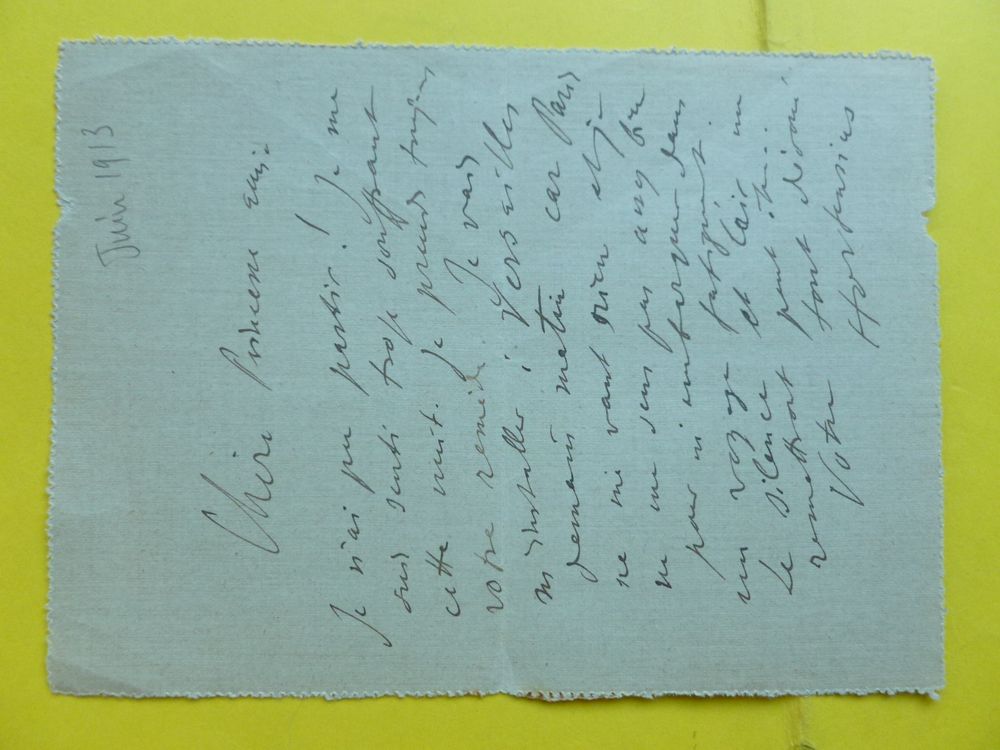 Juin 1913
Chère Princesse amie
Je n'ai pu partir ! Je me
suis senti trop souffrant
cette nuit. Je prends toujours
votre remède. Je vais
m'installer à Versailles
demain matin car Paris
ne me vaut rien et je
ne me sens pas assez bien
pour m'embarquer dans
un voyage fatigant.
Le silence et l'air me
remettront peut être.
Votre tout dévoué
Hortensius